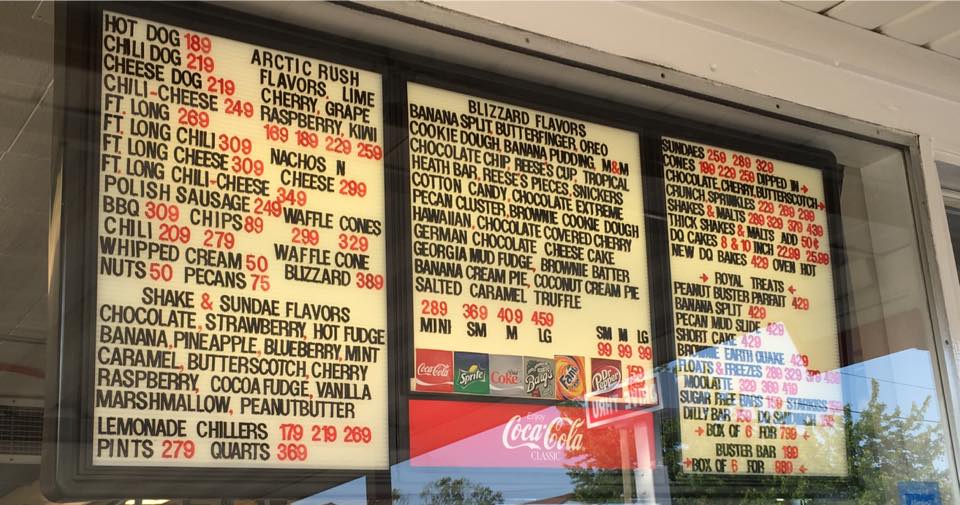 HOT DOG 189
CHILI DOG 219
CHEESE DOG 219
CHILI-CHEESE 249
FT. LONG 269
FT. LONG CHILI 309
FT. LONG CHEESE 309
FT. LONG CHILI-CHEESE 349
POLISH SAUSAGE 249
BBQ 309 CHIPS 89
CHILI 209 279
WHIPPED CREAM 50
NUTS 50 PECANS 75
ARCTIC RUSH
FLAVORS, LIME
CHERRY, GRAPE
RASPBERRY, KIWI
169 189 229 259
NACHOS N
CHEESE 299
WAFFLE CONES
299 329
WAFFLE CONE
BLIZZARD 389
SHAKE & SUNDAE FLAVORS
CHOCOLATE, STRAWBERRY, HOT FUDGE
BANANA, PINEAPPLE, BLUEBERRY, MINT
CARAMEL, BUTTERSCOTCH, CHERRY
RASPBERRY, COCOA FUDGE, VANILLA
MARSHMALLOW, PEANUTBUTTER
LEMONADE CHILLERS 179 219 269
PINTS 279 QUARTS 369
BLIZZARD FLAVORS
BANANA SPLIT, BUTTERFINGER, OREO
COOKIE DOUGH, BANANA PUDDING, M&M
CHOCOLATE CHIP, REESE'S CUP, TROPICAL
HEATH BAR, REESE'S PIECES, SNICKERS
COTTON CANDY, CHOCOLATE EXTREME
PECAN CLUSTER, BROWNIE COOKIE DOUGH
HAWAIIAN, CHOCOLATE COVERED CHERRY
GERMAN CHOCOLATE CHEESE CAKE
GEORGIA MUD FUDGE, BROWNIE BATTER
BANANA CREAM PIE, COCONUT CREAM PIE
SALTED CARAMEL TRUFFLE
289 369 409 459
MINI SM M LG
SM M LG
99 99 99
Coca-Cola
Sprite
Coke
Barq's
Fanta
Dr Pepper
159
Enjoy
Coca-Cola
CLASSIC
SUNDAES 259 289 329
CONES 199 229 259 DIPPED IN →
CHOCOLATE, CHERRY, BUTTERSCOTCH →
CRUNCH, SPRINKLES 229 269 299
SHAKES & MALTS 289 329 379 439
THICK SHAKES & MALTS ADD 50¢
DQ CAKES 8 & 10 INCH 22.99 25.99
NEW DQ BAKES 429 OVEN HOT
→ ROYAL TREATS ←
PEANUT BUSTER PARFAIT 429
BANANA SPLIT 429
PECAN MUD SLIDE 429
SHORT CAKE 429
BROWNIE EARTH QUAKE 429
FLOATS & FREEZES 289 329 379 439
MOOLATTE 329 369 419
SUGAR FREE BARS 150 STARKISS
DILLY BAR 159 DQ SANDWICH
→ BOX OF 6 FOR 799 ←
BUSTER BAR 199
→ BOX OF 6 FOR